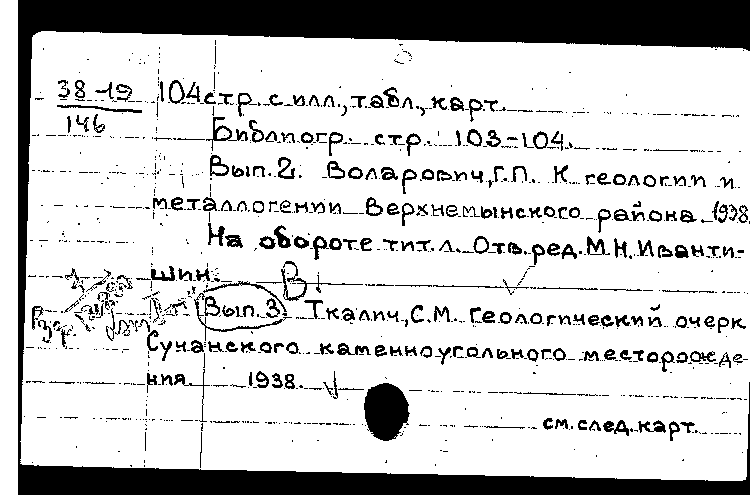 38-19 104 стр. с илл., табл., карт.
146
Библиогр. стр. 103-104.
Вып. 2. Воларович, Г.П. К геологии и
металлогении Верхнемынского района. 1938.
На обороте тит. л. Отв. ред. М.Н. Иванти-
шин.
В
Вып. 3. Ткалич, С.М. Геологический очерк
Сучанского каменноугольного месторожде-
ния. 1938.
см. след. карт.